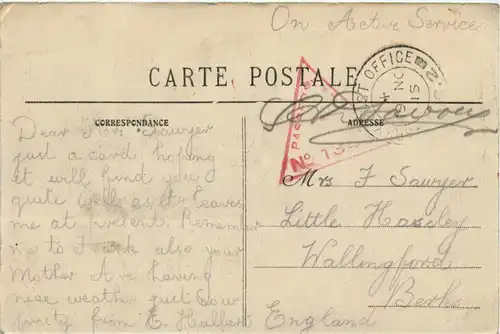 On Active Service
CARTE POSTALE
POST OFFICE
NO
15
PASSED
No 13
CORRESPONDANCE
ADRESSE
Dear Mrs Sawyer
just a card hoping
it will find you
quite well as it leaves
me at present. Remember
me to Frank also your
Mother Are having
nise weather just now
from E. Hulbert
Mrs F Sawyer
Little Haseley
Wallingford
Berks
England